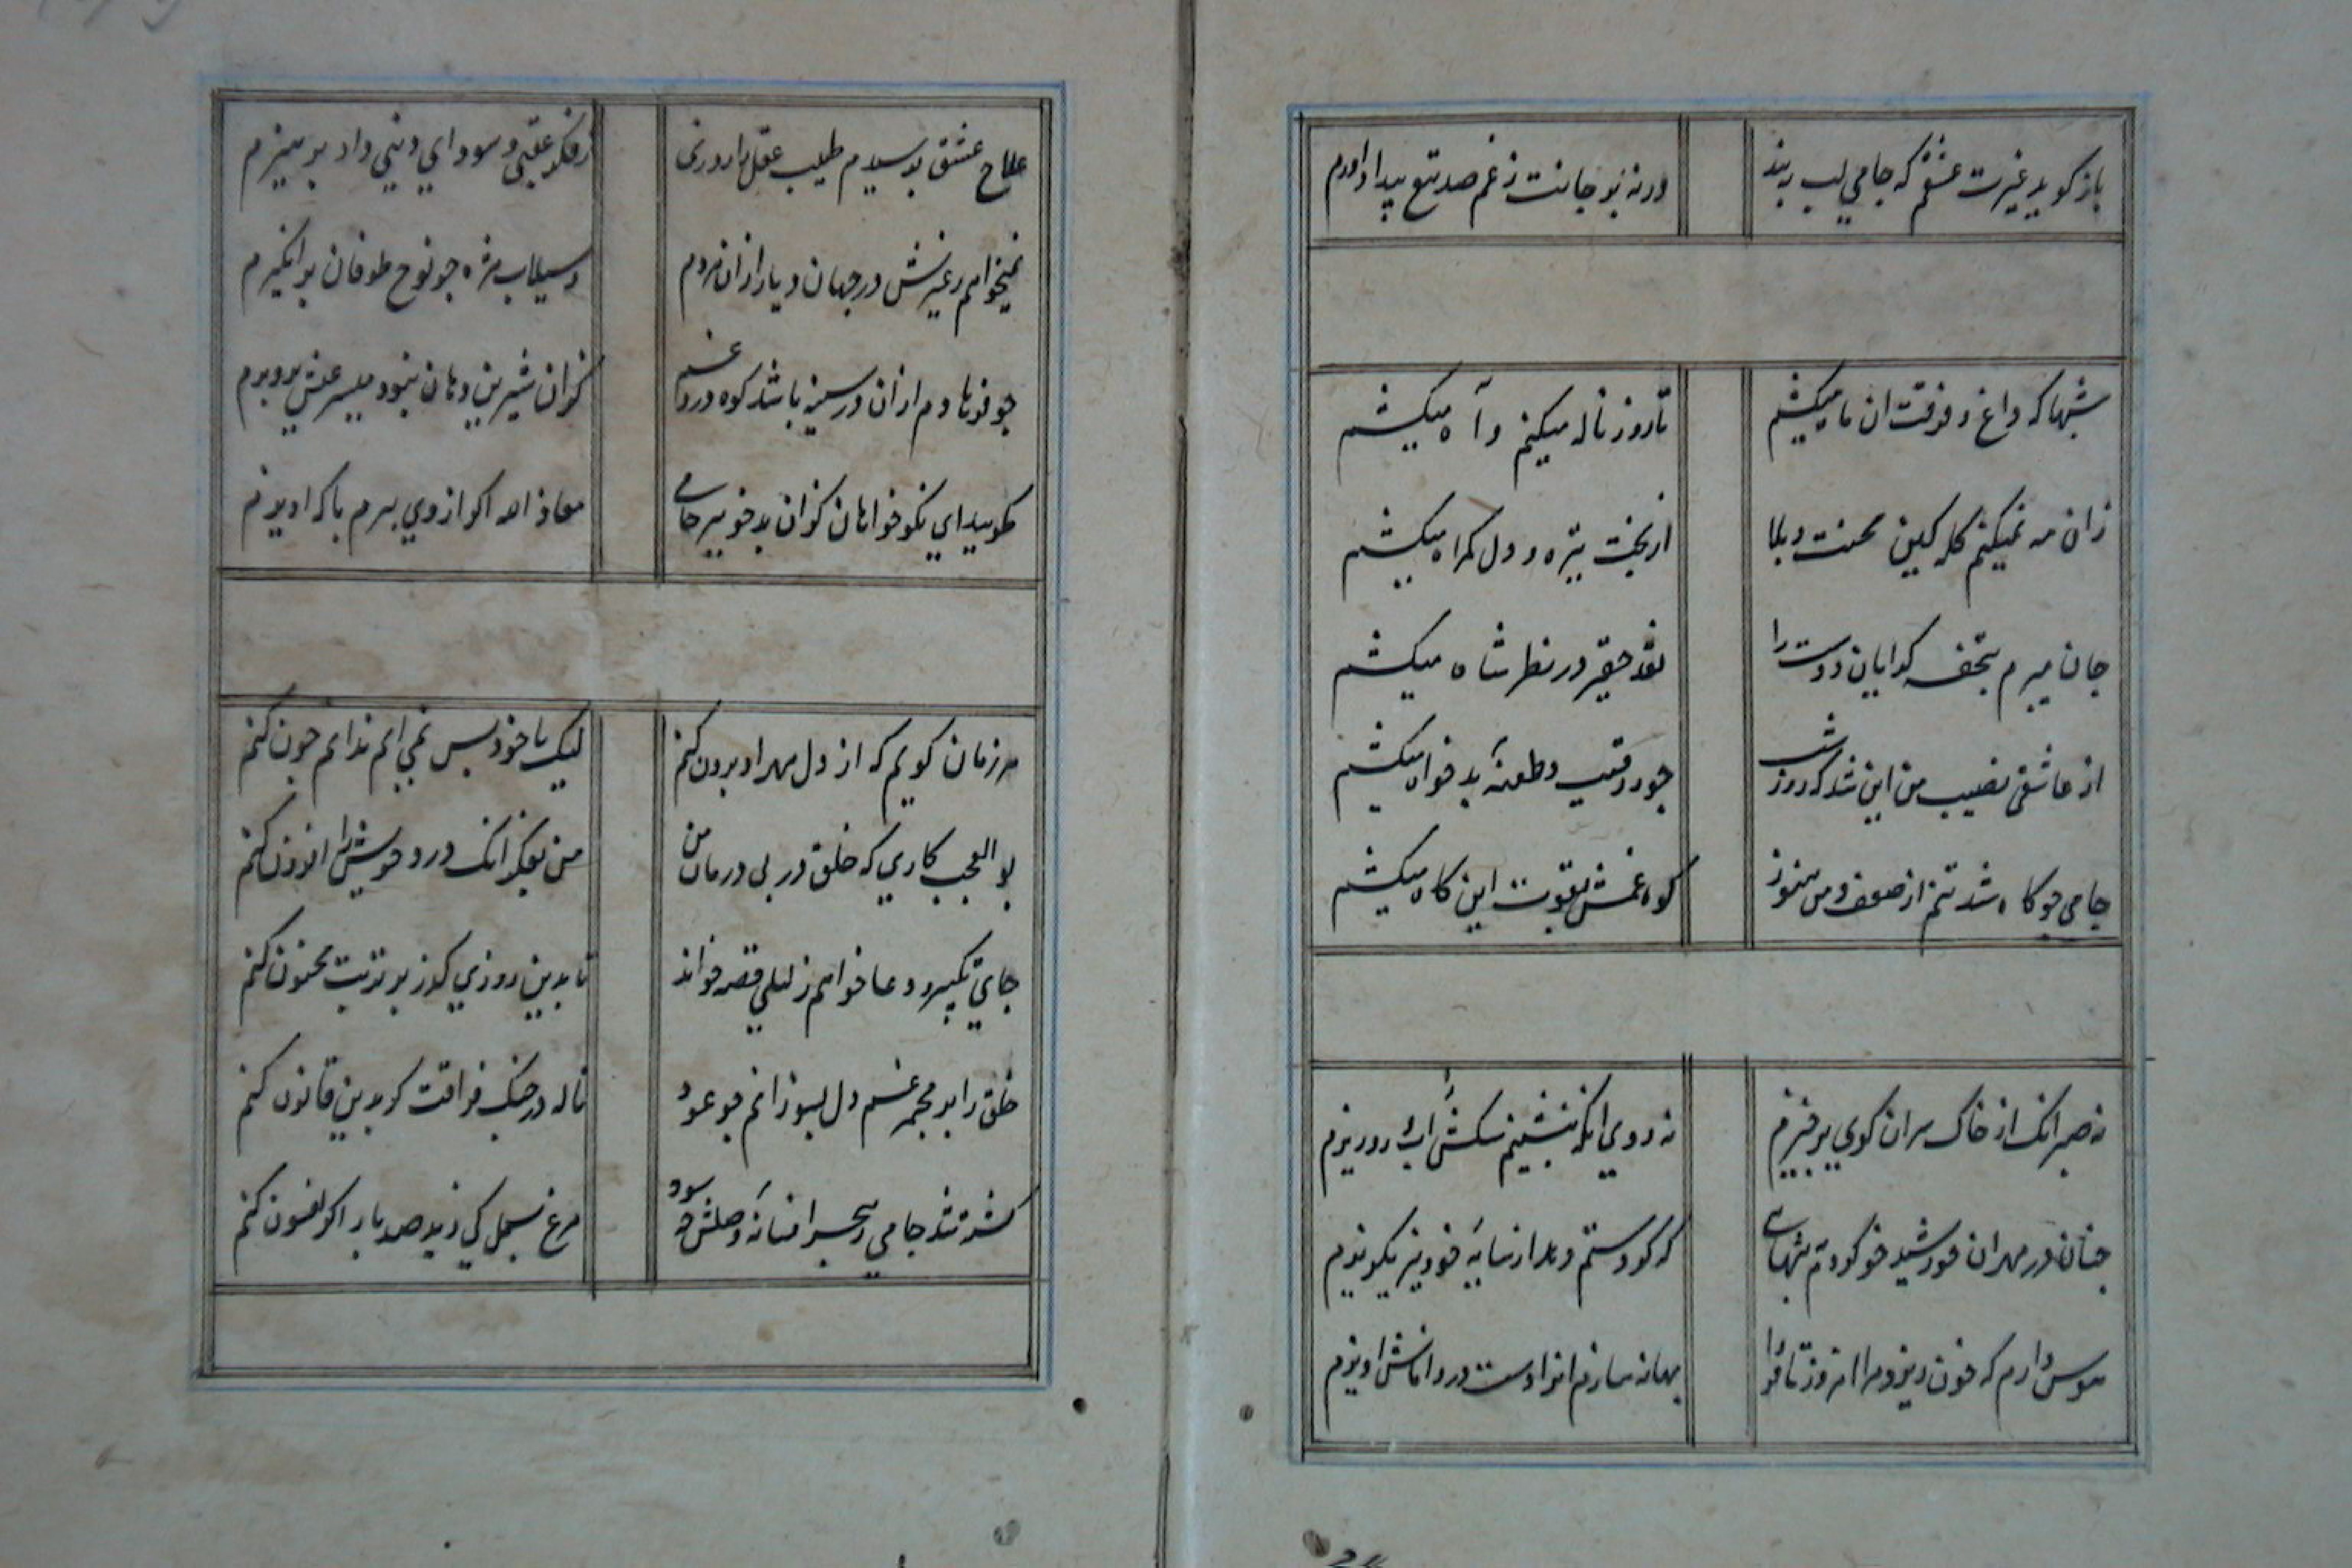 باز کوید غیرت عشقم که جامی لب ببند
ورنه بر جانت ز غم صد تیغ بیداد اورم
شبها که داغ فرقت ان ماه میکشم
تا روز ناله میکنم و آه میکشم
زان مه نمیکنم کله کین محنت و بلا
از بخت تیره و دل کمراه میکشم
جان میبرم بتحفه کدایان دوست را
نقد حقیر در نظر شاه میکشم
از عاشقی نصیب من این شد که روز شب
جور رقیب و طعنهٔ بدخواه میکشم
جامی جو کاه شد تنم از ضعف و من هنوز
کوه غمش بقوت این کاه میکشم
نه صبر انک از خاک سر ان کوی برخیزم
نه روی انکه بنشینم سکش را اب رو ریزم
جنان در مهر ان خورشید خو کردم بتنهایی
که کر دستم دهد از سایهٔ خود نیز بکریزم
هوس دارم که خون ریزد مرا امروز تا فردا
بهانه سازم انرا دست در دامانش اویزم
علاج عشق پرسیدم طبیب عقل را روزی
ز فکر عقبی و سودای دنیی داد پرهیزم
نمیخواهم غیرش در جهان دیار ازان هر دم
ز سیلاب مژه جو نوح طوفان برانکیزم
جو فرهادم ازان در سینه باشد کوه درد و غم
کزان شیرین دهان نبود میسر عیش پرویزم
مکویید ای نکوخواهان کزان بدخو ببر جامی
معاذ الله اکر از وی برم با که امیزم
هر زمان کویم که از دل مهر او بیرون کنم
لیک با خود بس نمی ایم ندانم جون کنم
بوالعجب کاری که خلق در پی درمان من
من بفکر انک درد خویش را افزون کنم
جای تکبیر و دعا خوانم ز لیلی قصه خواند
تا بدین روزی کذر بر تربت مجنون کنم
خلق را بر مجمر غم دل بسوزانم جو عود
ناله در جنک فراقت کر بدین قانون کنم
کشته شد جامی ز هجر افسانهٔ وصلش جه سود
مرغ بسمل کی زید صد بار اکر افسون کنم